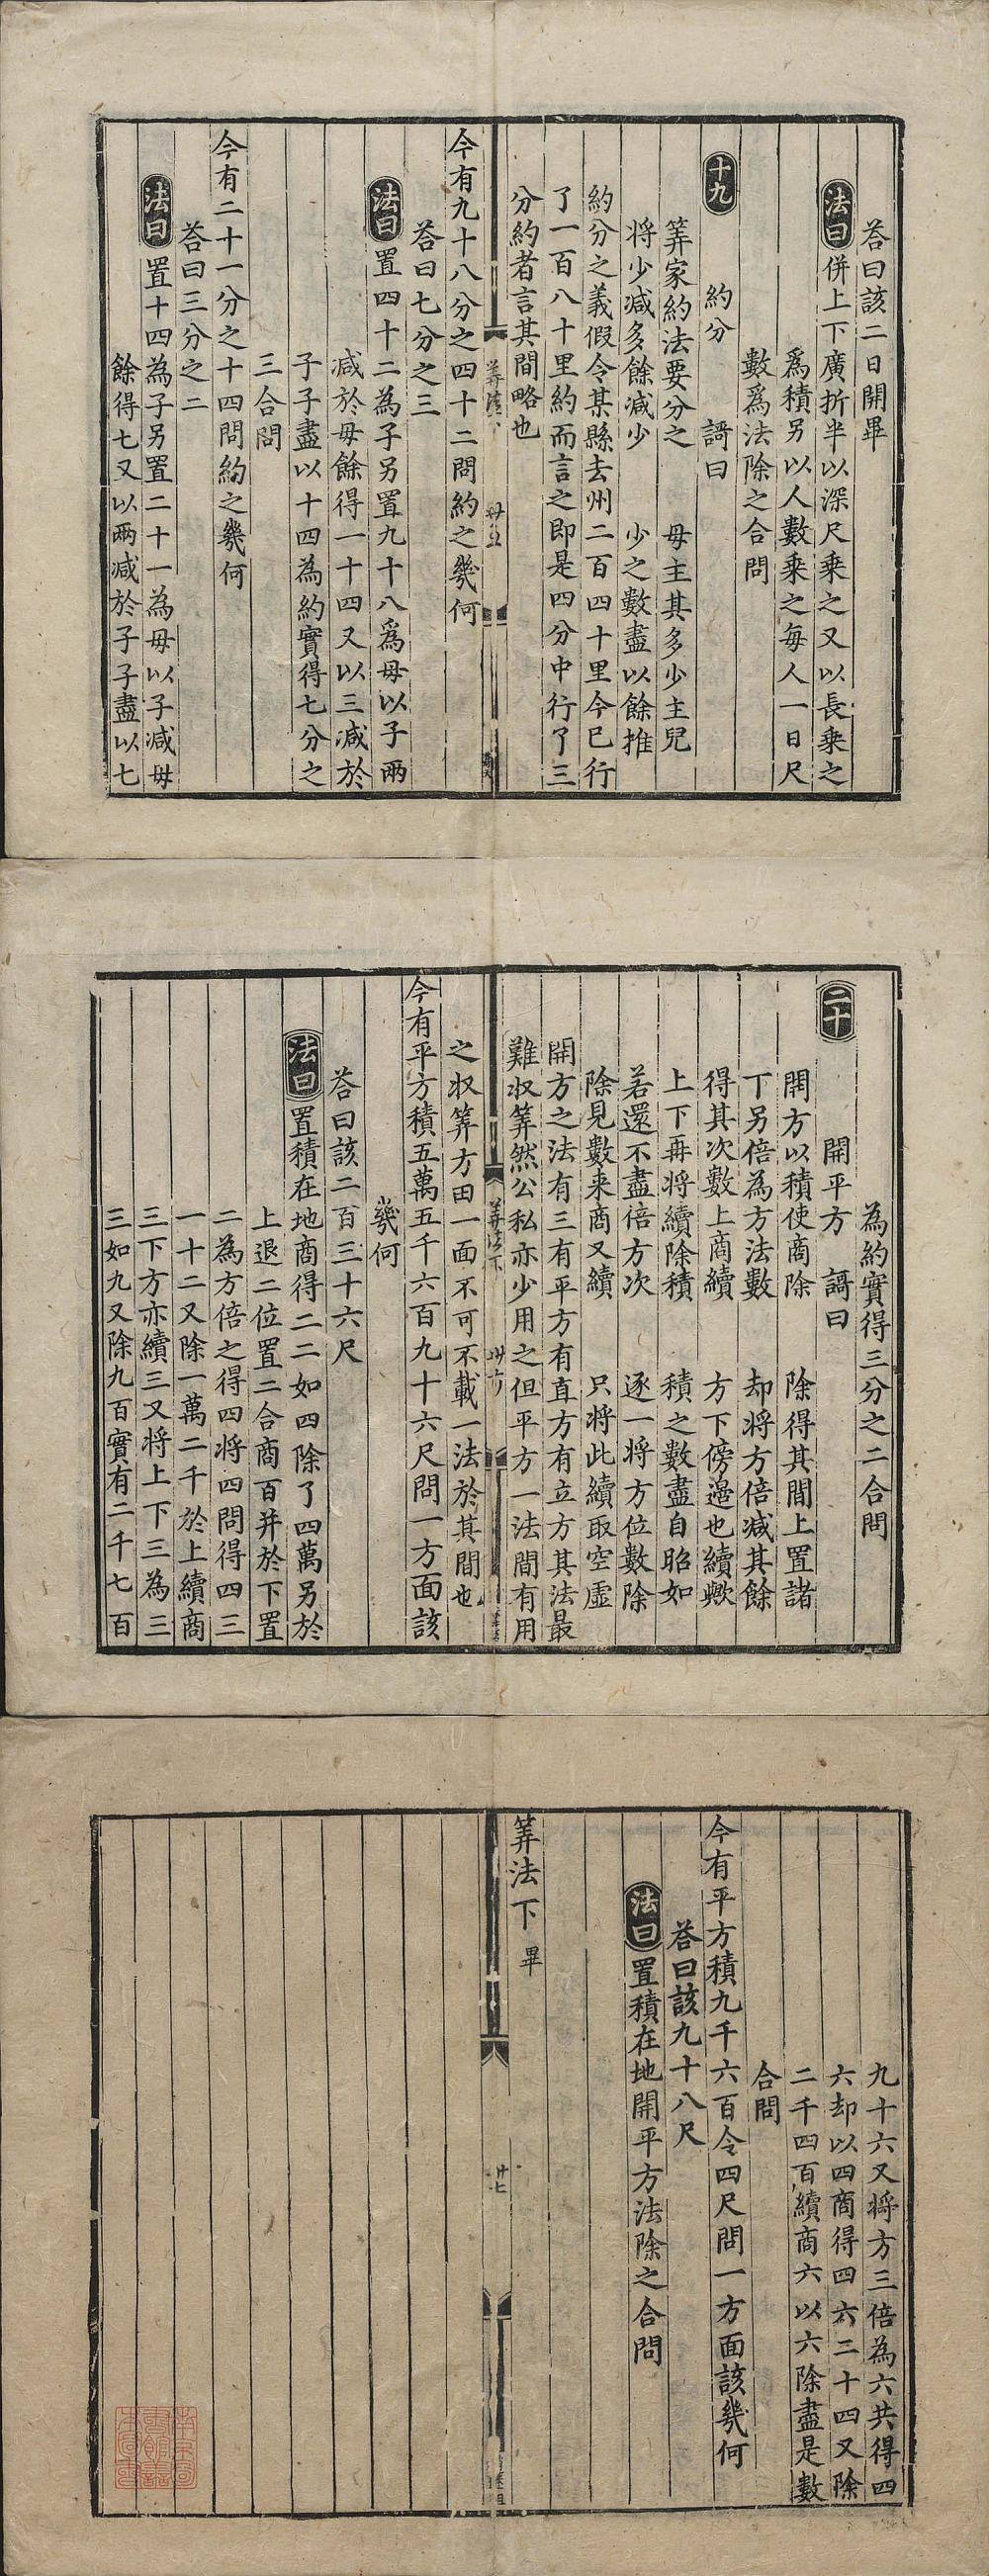 荅曰該二日開畢
法曰併上下廣折半以深尺乗之又以長乗之
爲積另以人數乗之每人一日尺
數爲法除之合問
十九 約分 謌曰
筭家約法要分之 母主其多少主兒
將少減多餘減少 少之數盡以餘推
約分之義假令某縣去州二百四十里今已行
了一百八十里約而言之即是四分中行了三
分約者言其間略也
今有九十八分之四十二問約之㡬何
荅曰七分之三
法曰置四十二為子另置九十八爲母以子兩
減於母餘得一十四又以三減於
子子盡以十四為約實得七分之
三合問
今有二十一分之十四問約之㡬何
荅曰三分之二
法曰置十四為子另置二十一為母以子減母
餘得七又以兩減於子子盡以七
為約實得三分之二合問
二十 開平方 謌曰
開方以積使商除 除得其間上置諸
丁另倍為方法數 却將方倍減其餘
得其次數上商續 方下傍邉也續歟
上下再將續除積 積之數盡自昭如
若還不盡倍方次 逐一將方位數除
除見數来商又續 只將此續取空虛
開方之法有三有平方有直方有立方其法最
難収筭然公私亦少用之但平方一法間有用
筭法下
之収筭方田一面不可不載一法於其間也
今有平方積五萬五千六百九十六尺問一方面該
㡬何
荅曰該二百三十六尺
法曰置積在地商得二二如四除了四萬另於
上退二位置二合商百并於下置
二為方倍之得四將四問得四三
一十二又除一萬二千於上續商
三下方亦續三又將上下三為三
三如九又除九百實有二千七百
九十六又將方三倍為六共得四
六却以四商得四六二十四又除
二千四百續商六以六除盡是數
合問
今有平方積九千六百令四尺問一方面該㡬何
荅曰該九十八尺
法曰置積在地開平方法除之合問
筭法下 畢
廿七